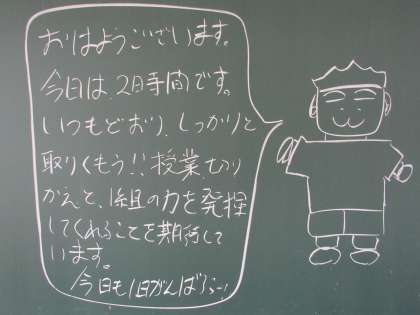 おはようございます。
今日は、2時間です。
いつもどおり、しっかりと
取りくもう!!授業、切り
かえと、1組の力を発揮
してくれることを期待して
います。
今日も1日がんばろー!